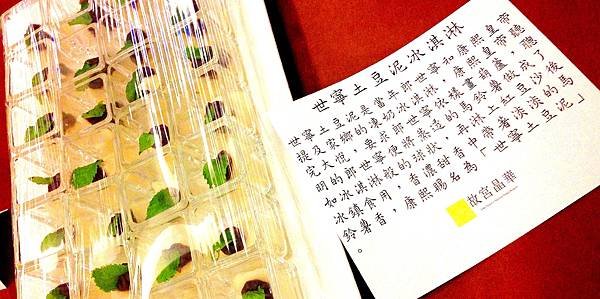 世寧土豆泥冰淇淋
世寧土豆泥是當年郎世寧和康熙皇帝
提及家鄉的凍奶冰淇淋，康熙皇帝聽
完大悅，要求郎世寧依樣畫葫蘆，聰
明的郎世寧便將蒸透的馬鈴薯做成了
如冰淇淋般的球狀，再淋上紅豆沙後
冰鎮食用，香濃甜香中帶著淡淡的馬
鈴薯香，康熙賜名為「世寧土豆泥」
。
故宮晶華